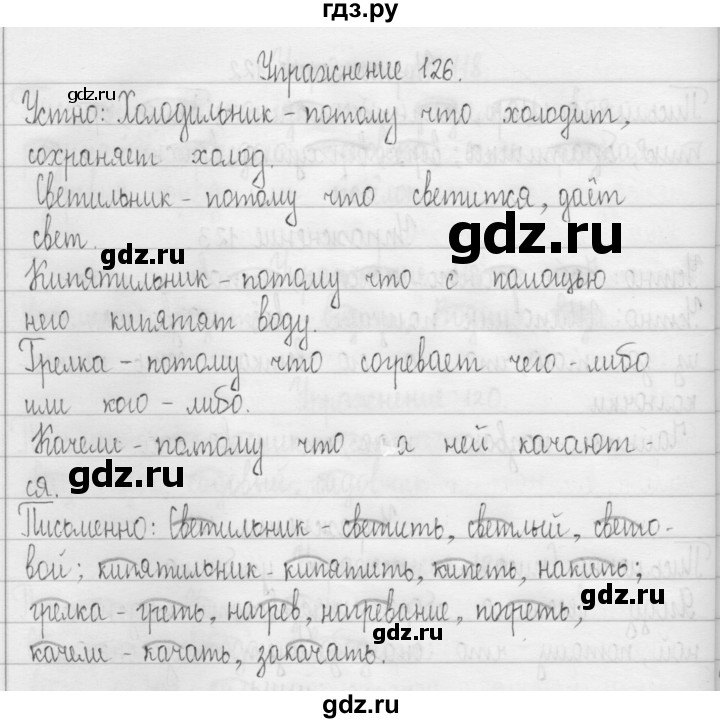 гдз.ру
Упражнение 126.
Устно: Холодильник - потому что холодит,
сохраняет холод.
Светильник - потому что светится, даёт
свет.
gdz.ru
gdz.ru
Кипятильник - потому что с помощью
него кипятят воду.
gdz.ru
Грелка - потому что согревает чего - либо
или кого - либо.
gdz.ru
Качели - потому что я ней качают -
ся.
gdz.ru
Письменно: Светильник - светить, светлый, свето-
вой; кипятильник - кипятить, кипеть, накипь;
gdz.ru
грелка - греть, нагрев, нагревание, погреть;
gdz.ru
качели - качать, закачать.
gdz.ru
gdz.ru